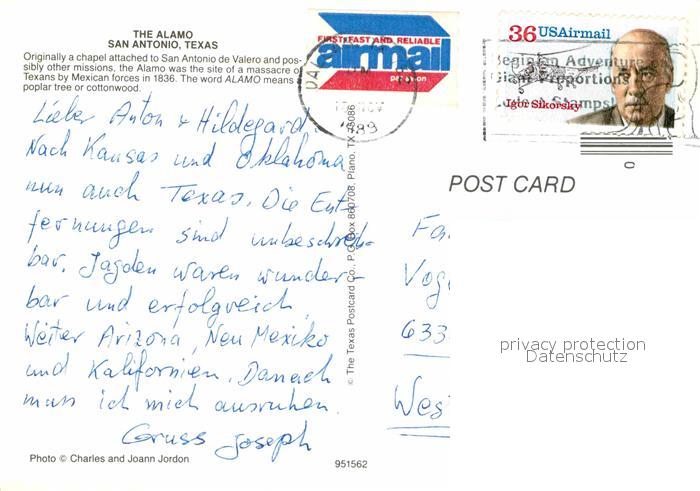 THE ALAMO
SAN ANTONIO, TEXAS
Originally a chapel attached to San Antonio de Valero and pos-
sibly other missions, the Alamo was the site of a massacre of
Texans by Mexican forces in 1836. The word ALAMO means
poplar tree or cottonwood.
Lieber Anton + Hildegard.
Nach Kansas und Oklahoma
nun auch Texas. Die Ent-
fernungen sind unbeschreib-
bar. Jagden waren wunder-
bar und erfolgreich
Weiter Arizona, Neu Mexiko
und Kalifornien. Danach
muss ich mich ausruhen.
Gruss Joseph
Photo © Charles and Joann Jordon
951562
© The Texas Postcard Co., P.O. Box 860708, Plano, TX 75086
FIRST FAST AND RELIABLE
airmail
par avion
1989
36 USAirmail
Begin an Adventure
Giant Proportions
Stamps!
Igor Sikorsky
POST CARD
Vog
633
Wes
privacy protection
Datenschutz